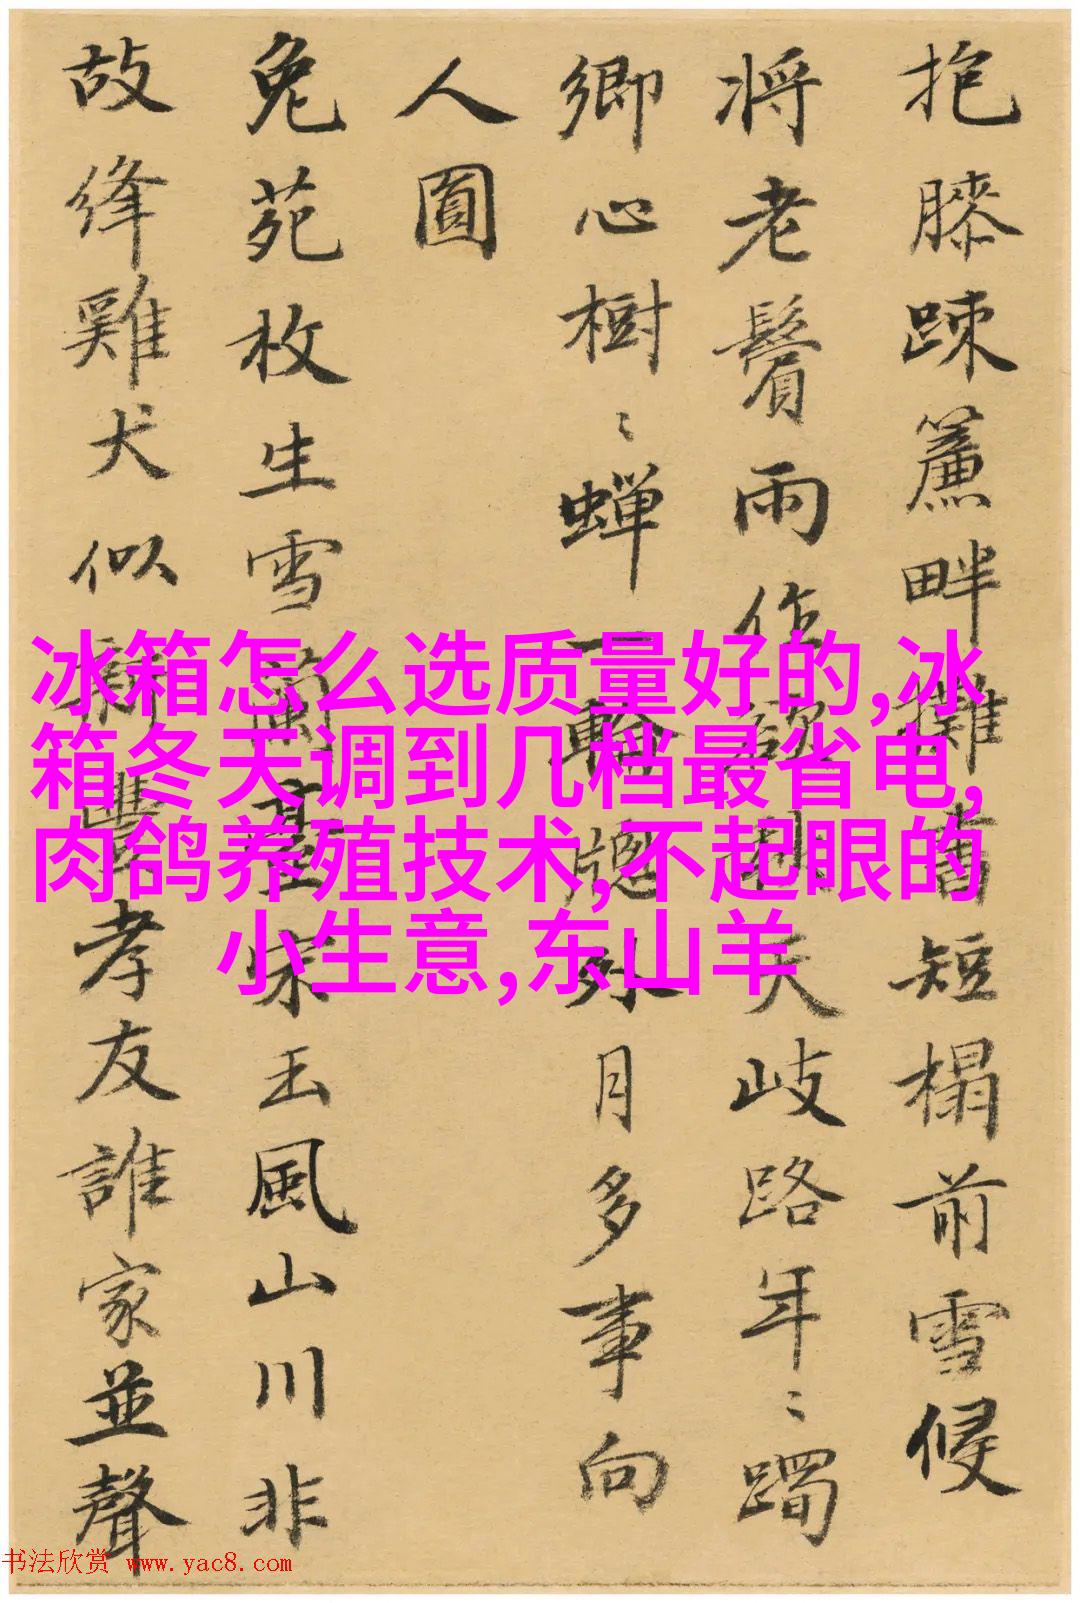 抱膝踈簾畔攤書短榻前雪候
将老鬢雨作天岐路年〻躅
鄉心樹〻蟬一輪牕外月多事向
人圓
兔苑枚生雪蘭臺宋玉風山川非
故絳雞犬似新豐孝友誰家並聲
冰箱怎么选质量好的,冰
箱冬天调到几档最省电,
肉鸽养殖技术,不起眼的
小生意,东山羊
书法欣赏 www.yac8.com